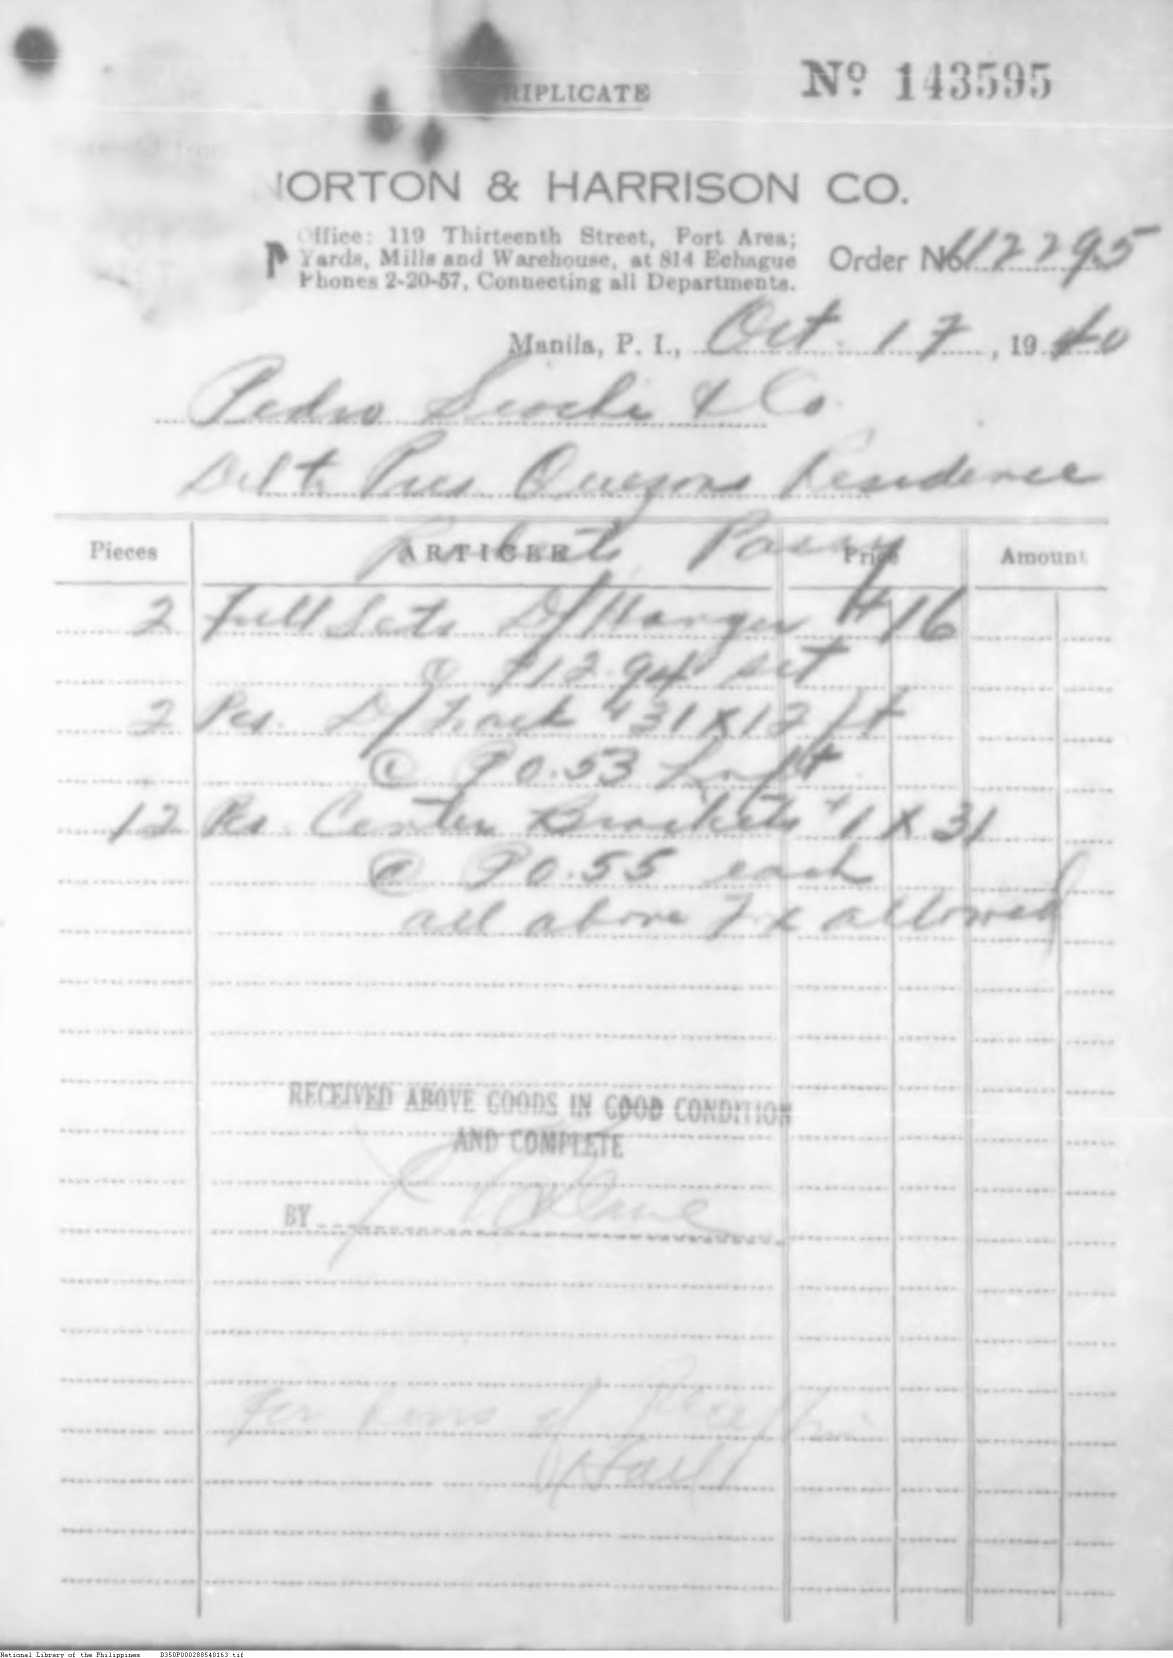 TRIPLICATE
Nº 143595
NORTON & HARRISON CO.
Office: 119 Thirteenth Street, Port Area;
Yards, Mills and Warehouse, at 814 Echague
Phones 2-20-57, Connecting all Departments.
Order No. 112295
Manila, P. I., Oct. 17, 1940
Pedro Siochi & Co.
Del to Pres Quezons Residence
Pieces ARTICLE Price Amount
Pasay
2 Full Sets D/Hanger #16
@ ₱12.94 set
2 Pcs. D/Track #31 x 12 ft
@ ₱0.53 Lin ft
12 Pcs. Center Brackets #1 x 31
@ ₱0.55 each
all above allowed
RECEIVED ABOVE GOODS IN GOOD CONDITION
AND COMPLETE
BY
For of
National Library of the Philippines